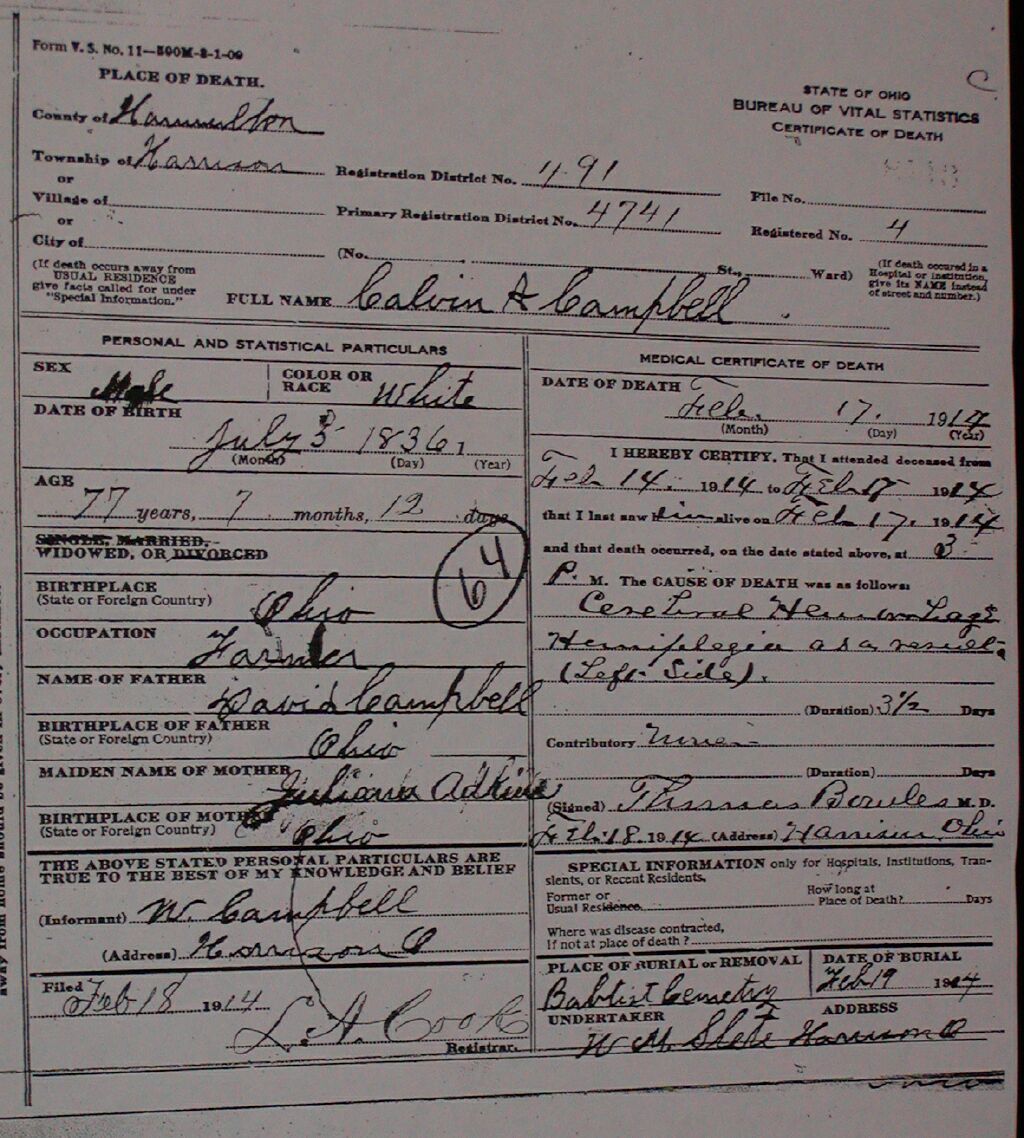 Form V. S. No. 11—500M-8-1-09
PLACE OF DEATH.
STATE OF OHIO
BUREAU OF VITAL STATISTICS
CERTIFICATE OF DEATH
C
County of Hamilton
Township of Harrison
Registration District No. 491
File No.
or
Village of
Primary Registration District No. 4741
Registered No. 4
or
City of
(No. St., Ward)
(If death occurs away from
USUAL RESIDENCE
give facts called for under
"Special Information.")
(If death occured in a
Hospital or Institution,
give its NAME instead
of street and number.)
FULL NAME Calvin A Campbell
PERSONAL AND STATISTICAL PARTICULARS
SEX Male
COLOR OR
RACE White
DATE OF BIRTH
July 5 1836
(Month) (Day) (Year)
AGE
77 years, 7 months, 12 days
SINGLE, MARRIED,
WIDOWED, OR DIVORCED
64
BIRTHPLACE
(State or Foreign Country) Ohio
OCCUPATION Farmer
NAME OF FATHER
David Campbell
BIRTHPLACE OF FATHER
(State or Foreign Country) Ohio
MAIDEN NAME OF MOTHER
Juliana Adkins
BIRTHPLACE OF MOTHER
(State or Foreign Country) Ohio
THE ABOVE STATED PERSONAL PARTICULARS ARE
TRUE TO THE BEST OF MY KNOWLEDGE AND BELIEF
(Informant) W. Campbell
(Address) Harrison O
Filed Feb 18 1914
L. A. Cook
Registrar.
MEDICAL CERTIFICATE OF DEATH
DATE OF DEATH
Feb. 17. 1914
(Month) (Day) (Year)
I HEREBY CERTIFY, That I attended deceased from
Feb 14. 1914 to Feb 17 1914
that I last saw him alive on Feb 17. 1914
and that death occurred, on the date stated above, at 3
P. M. The CAUSE OF DEATH was as follows:
Cerebral Hemorrhage
Hemiplegia as a result
(Left Side).
(Duration) 3½ Days
Contributory
(Duration) Days
(Signed) Thomas Bowles M. D.
Feb. 18. 1914 (Address) Harrison, Ohio
SPECIAL INFORMATION only for Hospitals, Institutions, Tran-
sients, or Recent Residents.
Former or
Usual Residence
How long at
Place of Death? Days
Where was disease contracted,
If not at place of death?
PLACE OF BURIAL or REMOVAL
Babtist Cemetry
DATE OF BURIAL
Feb 19 1914
UNDERTAKER
ADDRESS
W M. Harrison O